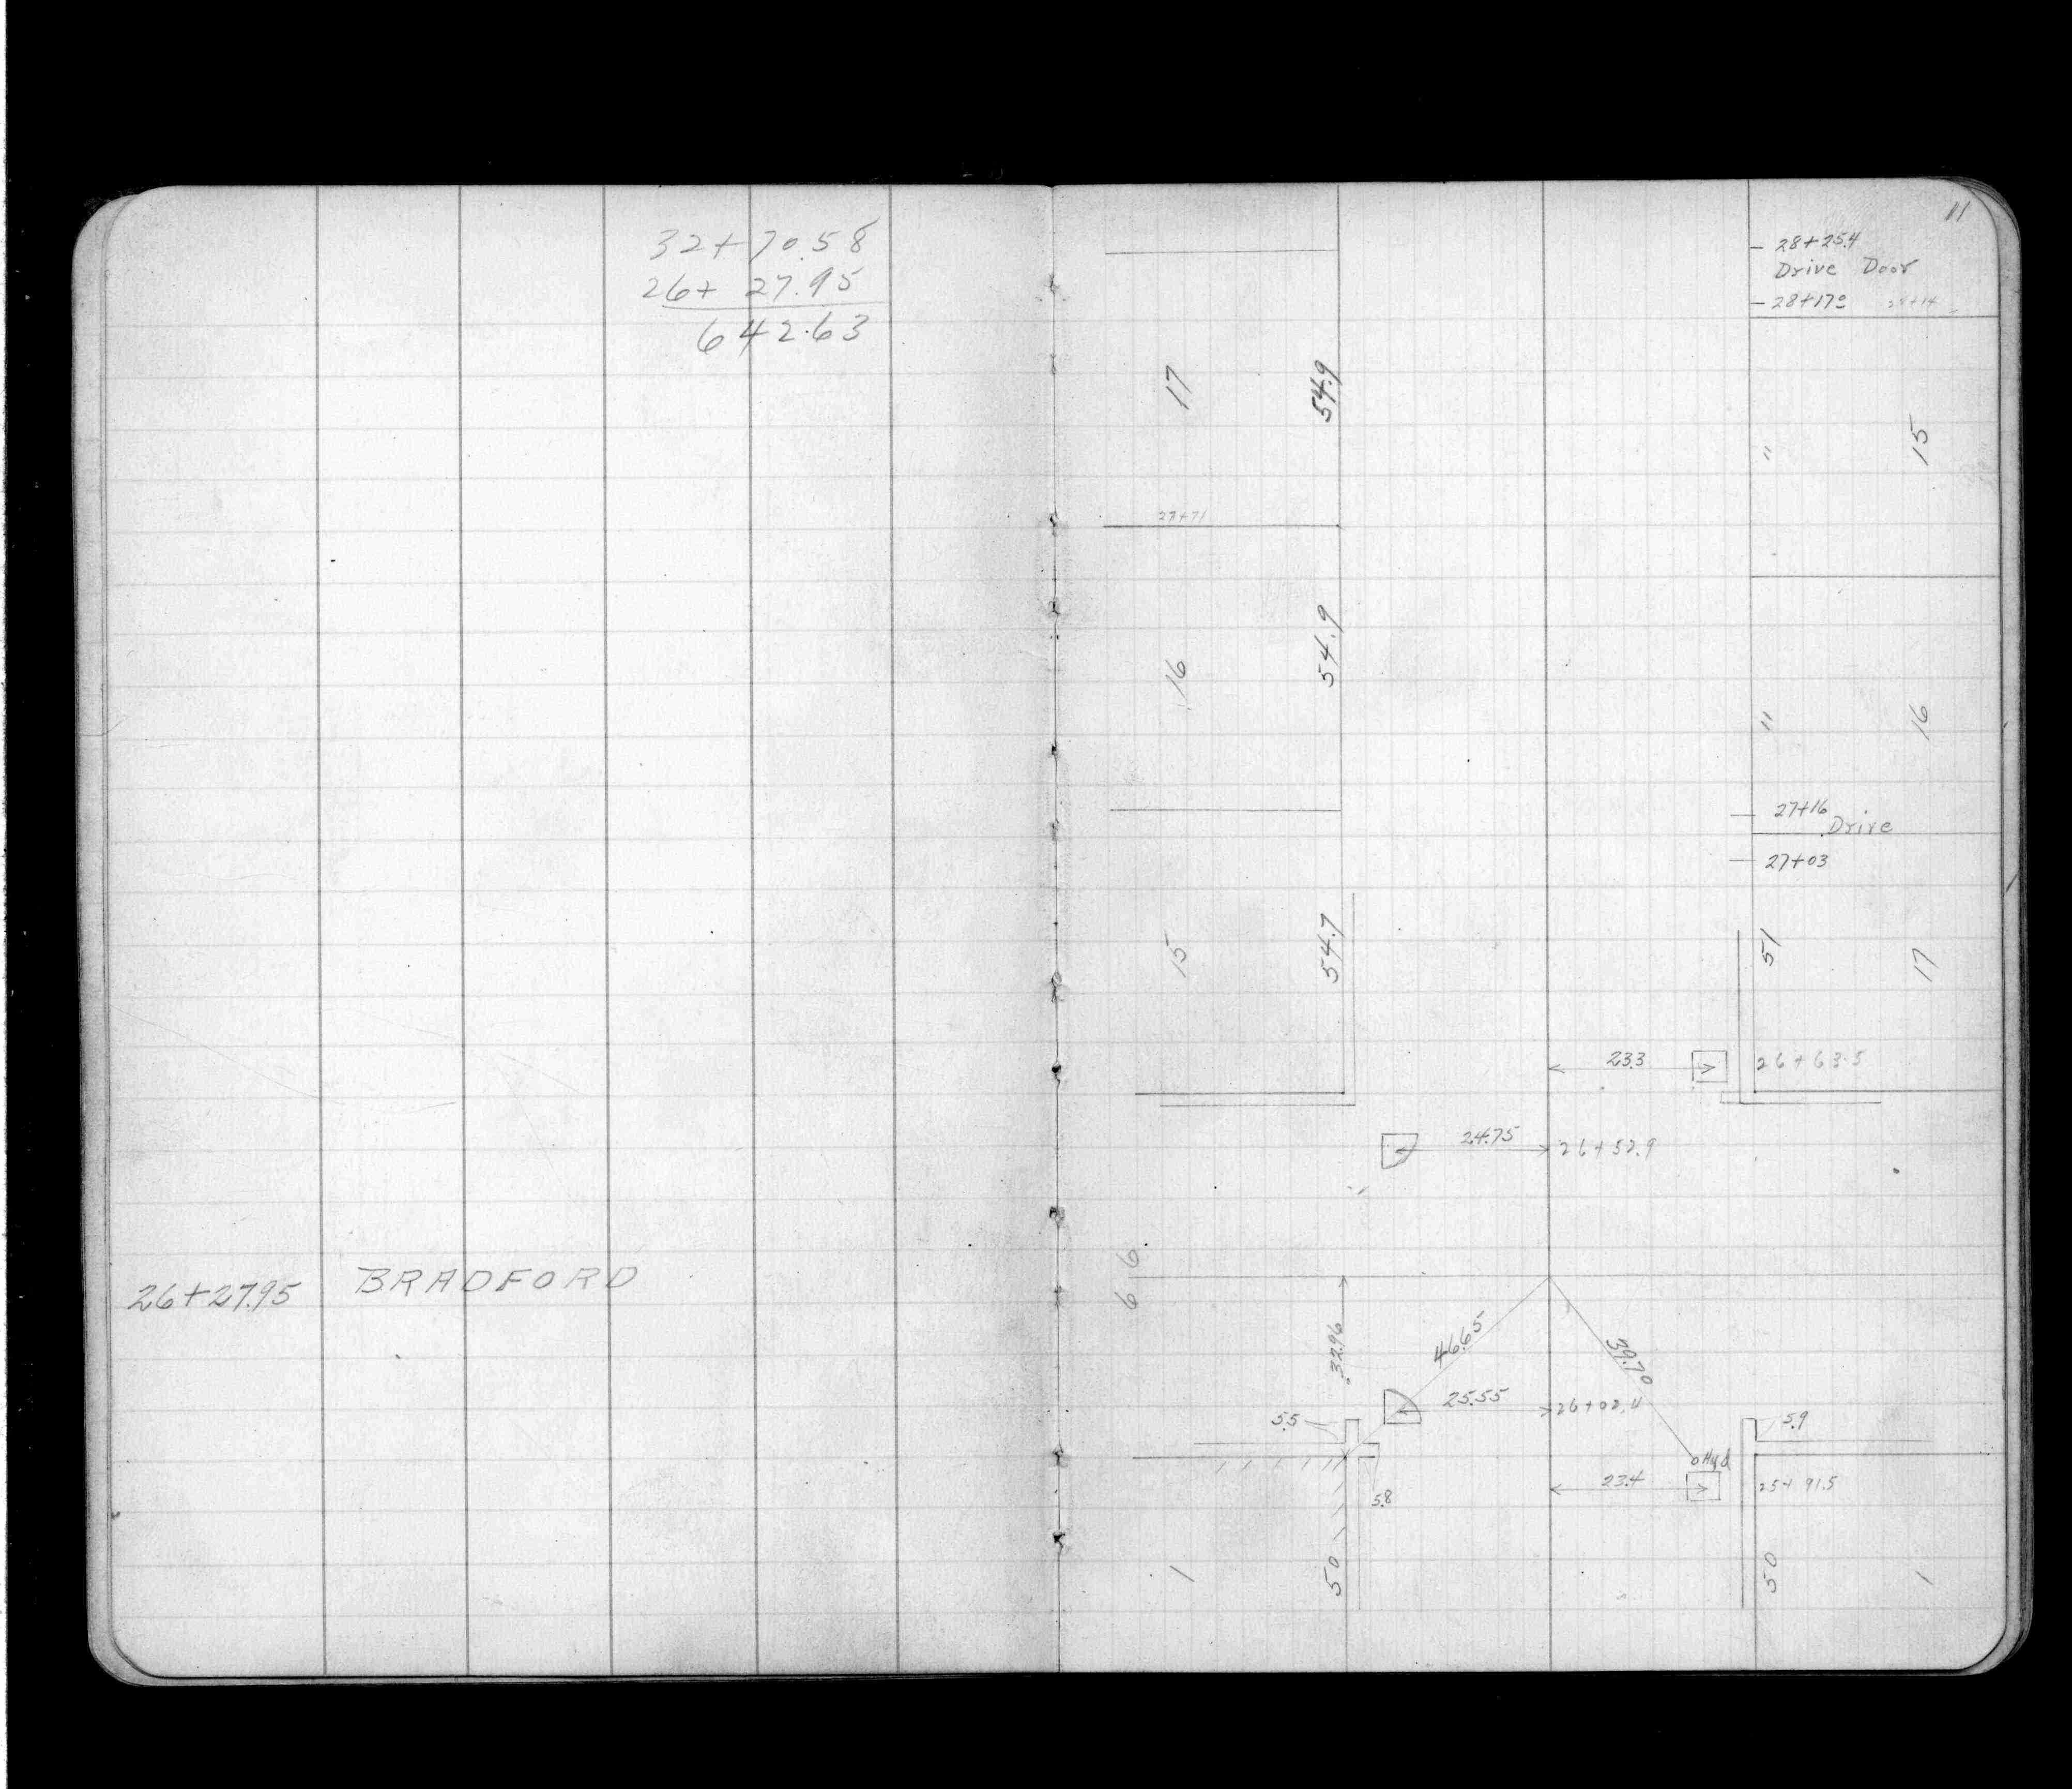 32+70.58
26+ 27.95
642.63
26+27.95 BRADFORD
11
28+25.4
Drive Door
28+17º
17 54.9
" 15
27+71
16 54.9
" 16
27+16
Drive
27+03
15 54.7
51 17
23.3 26+63.5
24.75 26+52.9
66
32.96 46.65 39.70
25.55 26+02.4
5.5 5.9
Hyd
23.4 25+91.5
5.8
1 50 50 1